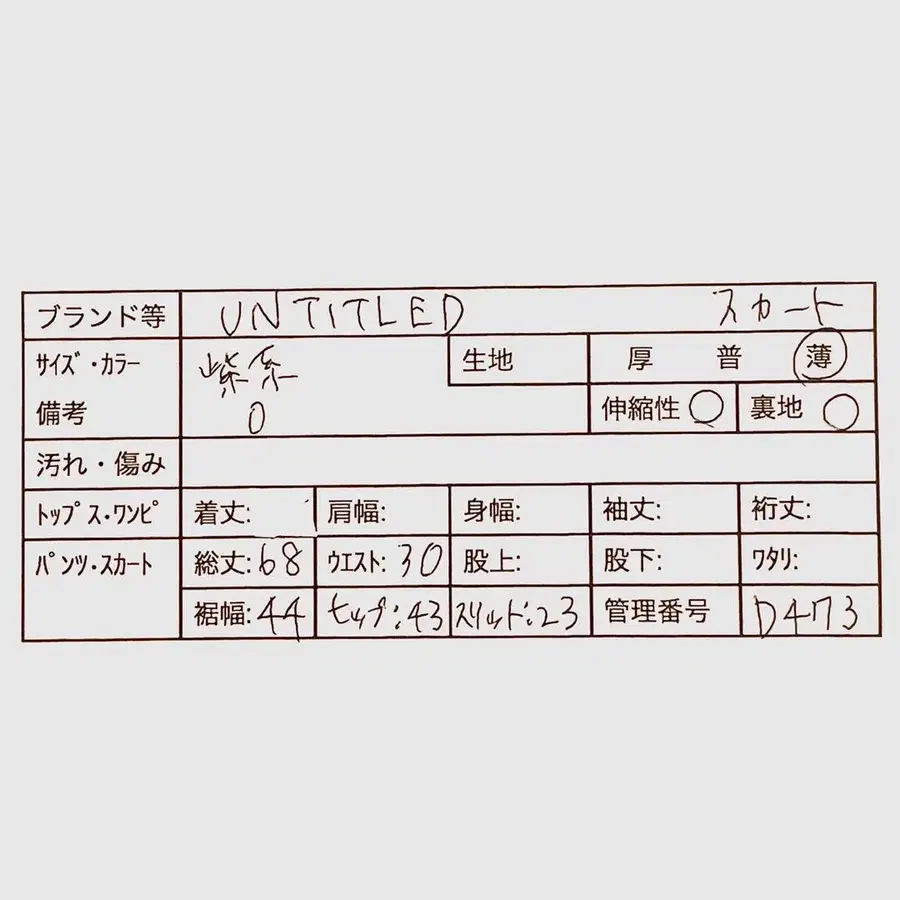 ブランド等 UNTITLED スカート
ｻｲｽﾞ・ｶﾗｰ 紫系 生地 厚 普 薄
備考 0 伸縮性 ○ 裏地 ○
汚れ・傷み
ﾄｯﾌﾟｽ・ﾜﾝﾋﾟ 着丈: 肩幅: 身幅: 袖丈: 裄丈:
ﾊﾟﾝﾂ・ｽｶｰﾄ 総丈:68 ｳｴｽﾄ:30 股上: 股下: ﾜﾀﾘ:
裾幅:44 ヒップ:43 スリッド:23 管理番号 D473